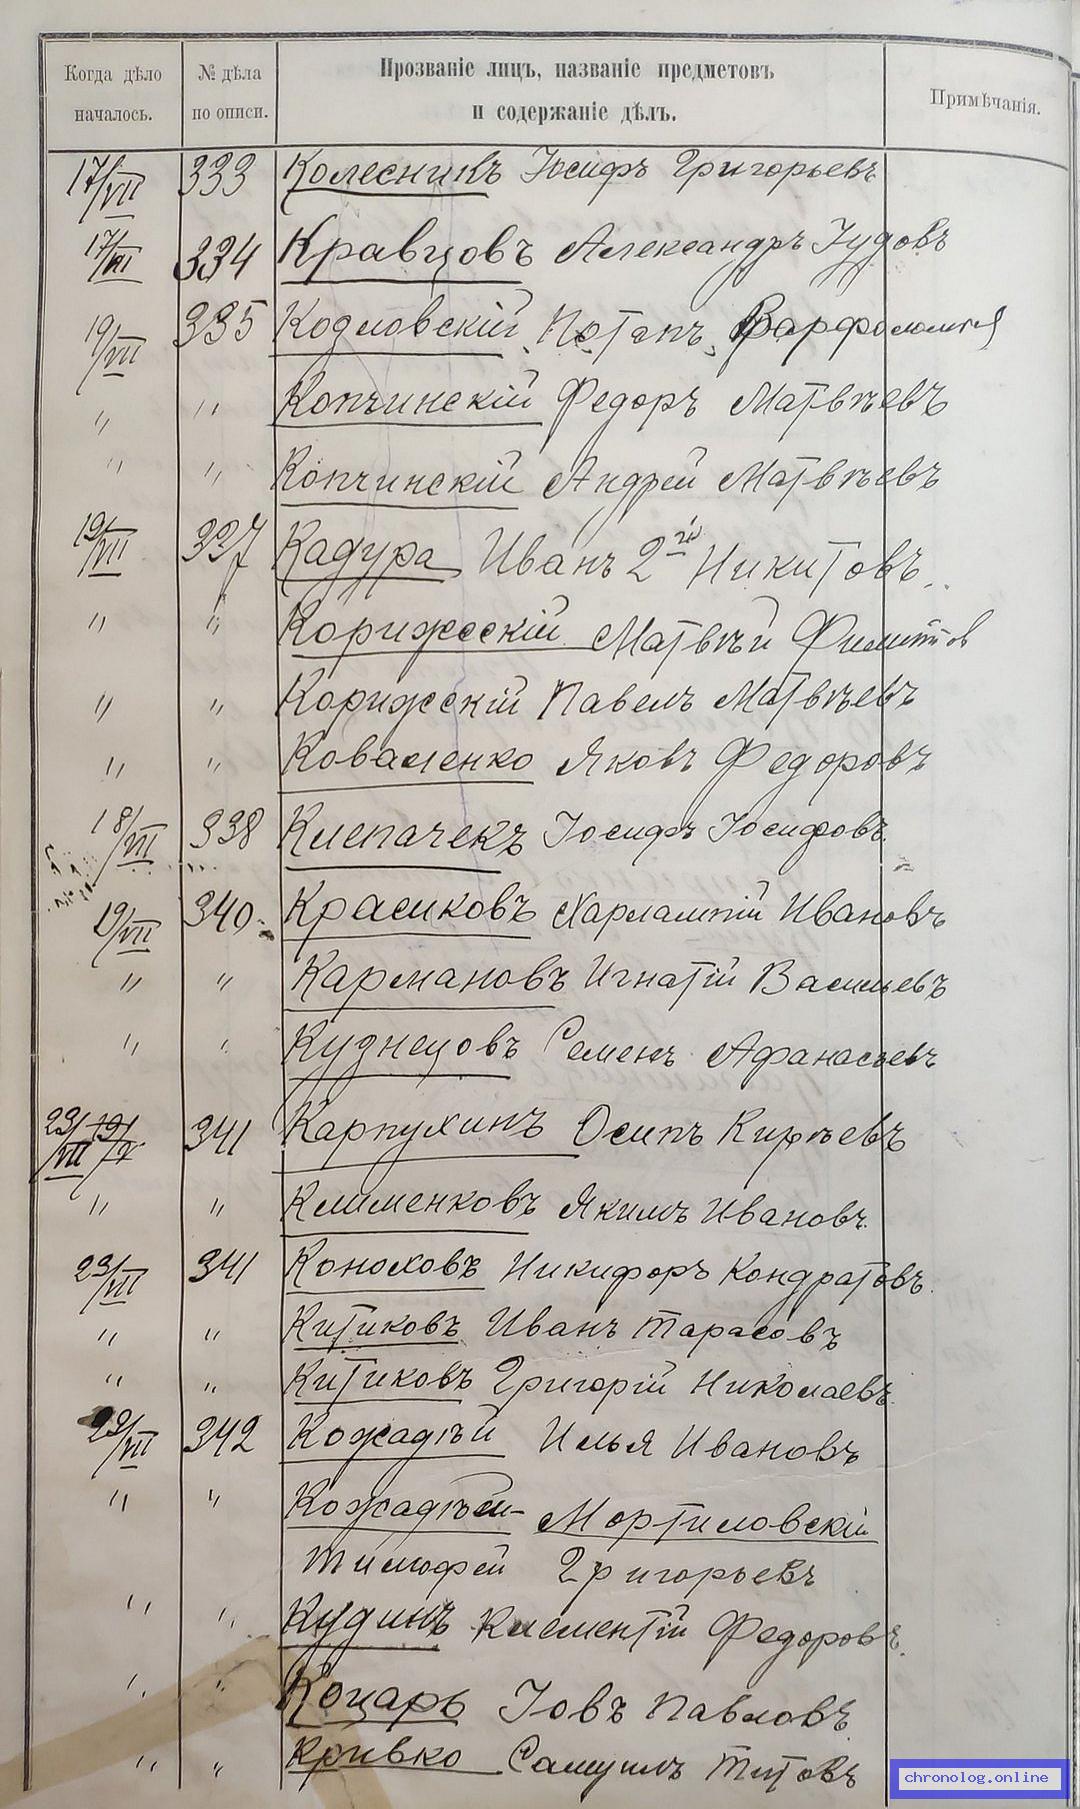 Когда дѣло началось.
№ дѣла по описи.
Прозваніе лицъ, названіе предметовъ
и содержаніе дѣлъ.
Примѣчанія.
17/VII 333 Колесникъ Іосифъ Григорьевъ
17/VII 334 Кравцовъ Александръ Іудовъ
19/VII 335 Козловскій Потапъ Варфоломея
" " Копчинскій Федоръ Матвѣевъ
" " Копчинскій Андрей Матвѣевъ
19/VII 337 Кадура Иванъ 2й Никитовъ
" " Корижскій Матвѣй
" " Корижскій Павелъ Матвѣевъ
" " Коваленко Яковъ Федоровъ
18/VII 338 Клепачекъ Іосифъ Іосифовъ
19/VII 340 Красиковъ Харлампій Ивановъ
" " Кармановъ Игнатій Васильевъ
" " Кузнецовъ Семенъ Афанасьевъ
23/VII 341 Карпухинъ Осипъ Кирѣевъ
" " Клименковъ Якимъ Ивановъ
23/VII 341 Коноховъ Никифоръ Кондратовъ
" " Китиковъ Иванъ Тарасовъ
" " Китиковъ Григорій Николаевъ
23/VII 342 Кожадѣй Илья Ивановъ
" " Кожадѣй-Мортиловскій
Тимофей Григорьевъ
" " Кудинъ Клементій Федоровъ
" " Коцарь Іовъ Павловъ
" " Кривко Самуилъ Титовъ
chronolog.online